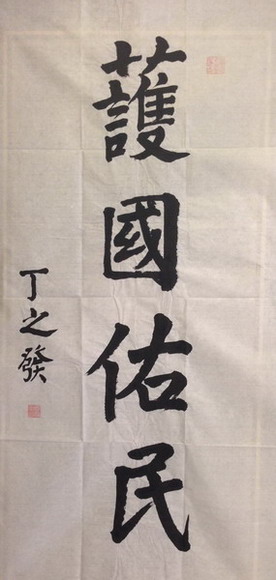 䕶國佑民
丁之發